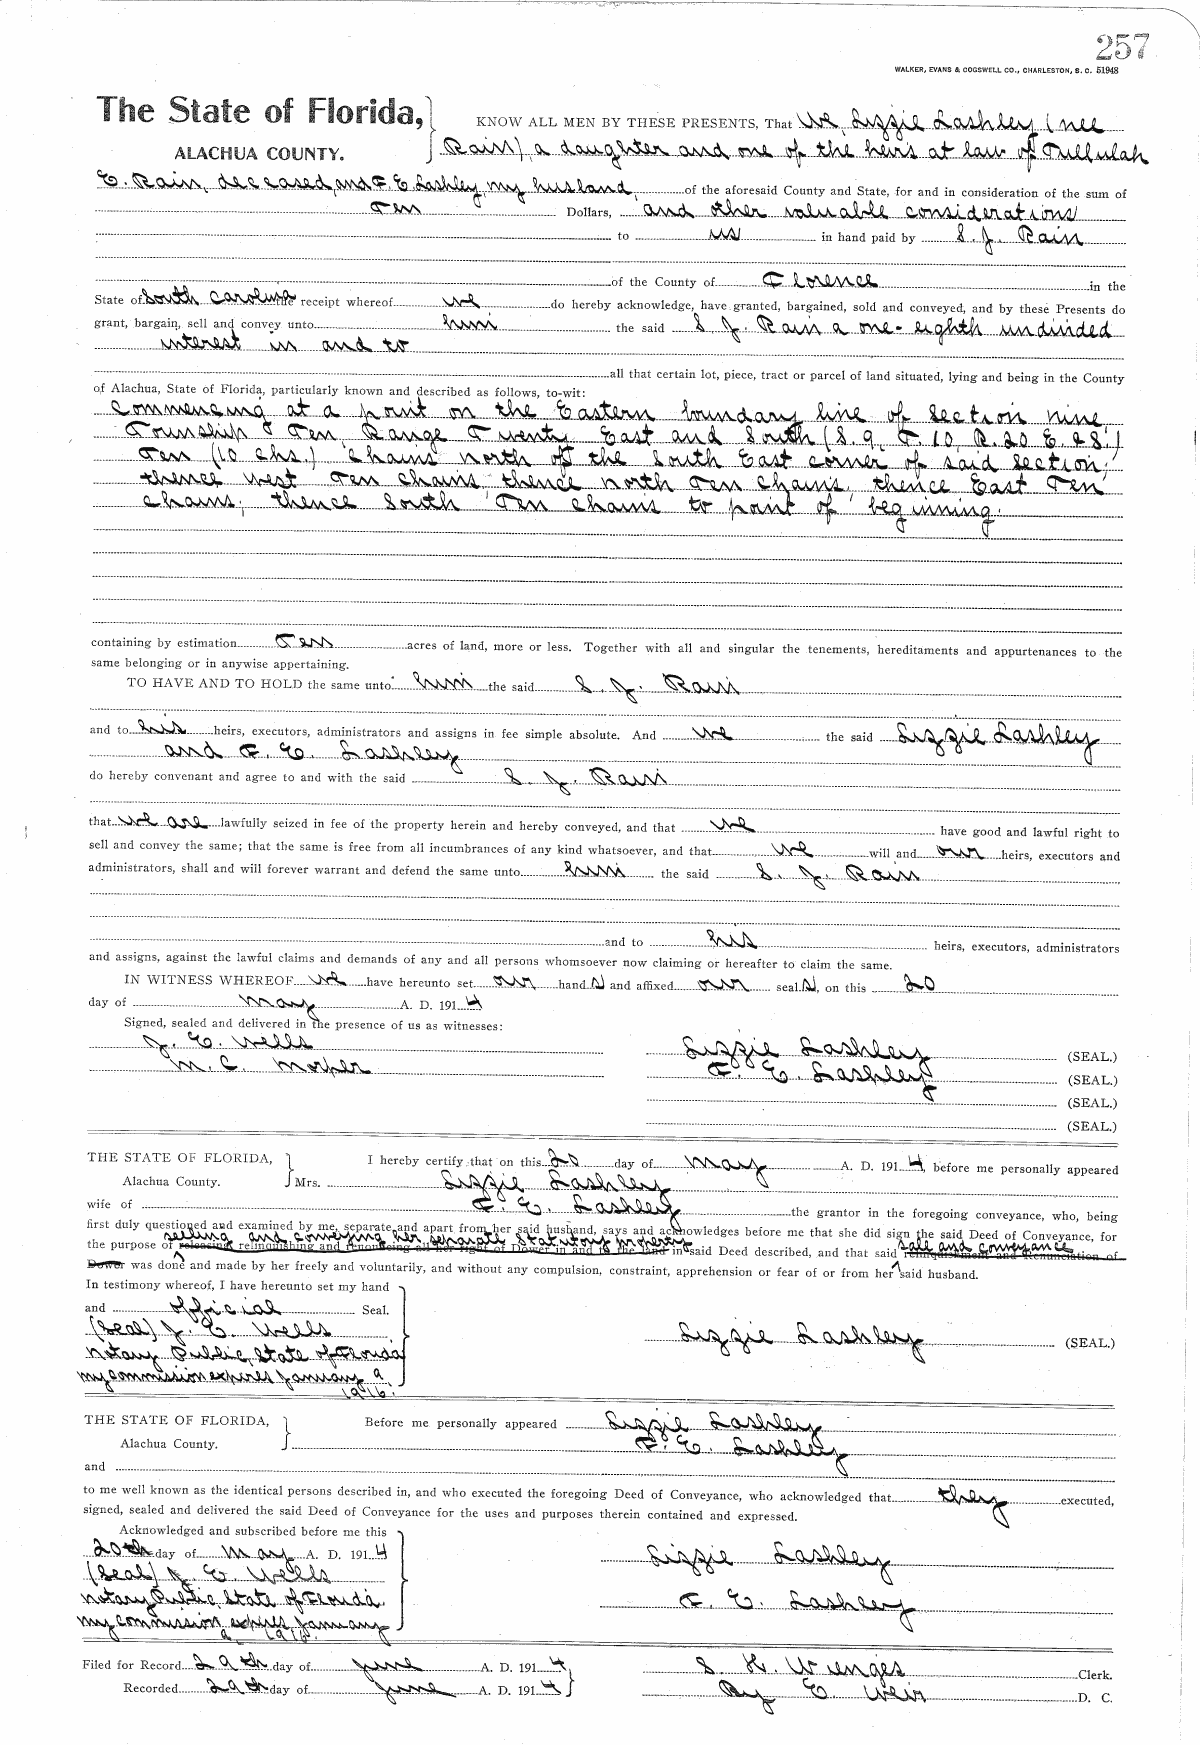 257
WALKER, EVANS & COGSWELL CO., CHARLESTON, S. C. 51948
The State of Florida, KNOW ALL MEN BY THESE PRESENTS, That We, Lizzie Lashley (nee
ALACHUA COUNTY. Rain), a daughter and one of the heirs at law of Tullulah
E. Rain, deceased, and F. E. Lashley, my husband, of the aforesaid County and State, for and in consideration of the sum of
Ten Dollars, and other valuable considerations
to us in hand paid by S. J. Rain
of the County of Florence in the
State of South Carolina the receipt whereof we do hereby acknowledge, have granted, bargained, sold and conveyed, and by these Presents do
grant, bargain, sell and convey unto him the said S J. Rain a one-eighth undivided
interest in and to
all that certain lot, piece, tract or parcel of land situated, lying and being in the County
of Alachua, State of Florida, particularly known and described as follows, to-wit:
Commencing at a point on the Eastern boundary line of section nine
Township Ten, Range Twenty East and South (S. 9, T 10, R. 20 E. & S.)
Ten (10 chs.) chains north of the South East corner of said section;
thence west Ten chains, thence north Ten chains, thence East Ten
chains; thence South Ten chains to point of beginning.
containing by estimation Ten acres of land, more or less. Together with all and singular the tenements, hereditaments and appurtenances to the
same belonging or in anywise appertaining.
TO HAVE AND TO HOLD the same unto him the said S. J. Rain
and to his heirs, executors, administrators and assigns in fee simple absolute. And we the said Lizzie Lashley
and F. E. Lashley
do hereby convenant and agree to and with the said S. J. Rain
that we are lawfully seized in fee of the property herein and hereby conveyed, and that we have good and lawful right to
sell and convey the same; that the same is free from all incumbrances of any kind whatsoever, and that we will and our heirs, executors and
administrators, shall and will forever warrant and defend the same unto him the said S. J. Rain
and to his heirs, executors, administrators
and assigns, against the lawful claims and demands of any and all persons whomsoever now claiming or hereafter to claim the same.
IN WITNESS WHEREOF we have hereunto set our hand s and affixed our seal s, on this 20
day of May A. D. 191 4
Signed, sealed and delivered in the presence of us as witnesses:
J. E. Wells Lizzie Lashley (SEAL.)
M. C. F. E. Lashley (SEAL.)
(SEAL.)
(SEAL.)
THE STATE OF FLORIDA, I hereby certify that on this 20 day of May A. D. 191 4, before me personally appeared
Alachua County. Mrs. Lizzie Lashley
wife of F. E. Lashley the grantor in the foregoing conveyance, who, being
first duly questioned and examined by me, separate and apart from her said husband, says and acknowledges before me that she did sign the said Deed of Conveyance, for
selling and conveying her separate statutory property sale and conveyance
the purpose of releasing relinquishing and renouncing all her right of Dower in and to the land in said Deed described, and that said relinquishment and Renunciation of
Dower was done and made by her freely and voluntarily, and without any compulsion, constraint, apprehension or fear of or from her said husband.
In testimony whereof, I have hereunto set my hand
and official Seal.
(Seal) J. E. Wells Lizzie Lashley (SEAL.)
Notary Public, State of Florida
my commission expires January 9
1916.
THE STATE OF FLORIDA, Before me personally appeared Lizzie Lashley
Alachua County. F. E. Lashley
and
to me well known as the identical persons described in, and who executed the foregoing Deed of Conveyance, who acknowledged that they executed,
signed, sealed and delivered the said Deed of Conveyance for the uses and purposes therein contained and expressed.
Acknowledged and subscribed before me this
20th day of May A. D. 191 4 Lizzie Lashley
(Seal) J. E. Wells
Notary Public, State of Florida. F. E. Lashley
my commission expires January
9 1916.
Filed for Record 29th day of June A. D. 191 4 S. H. Wienges Clerk.
Recorded 29th day of June A. D. 191 4 By E. Weir D. C.